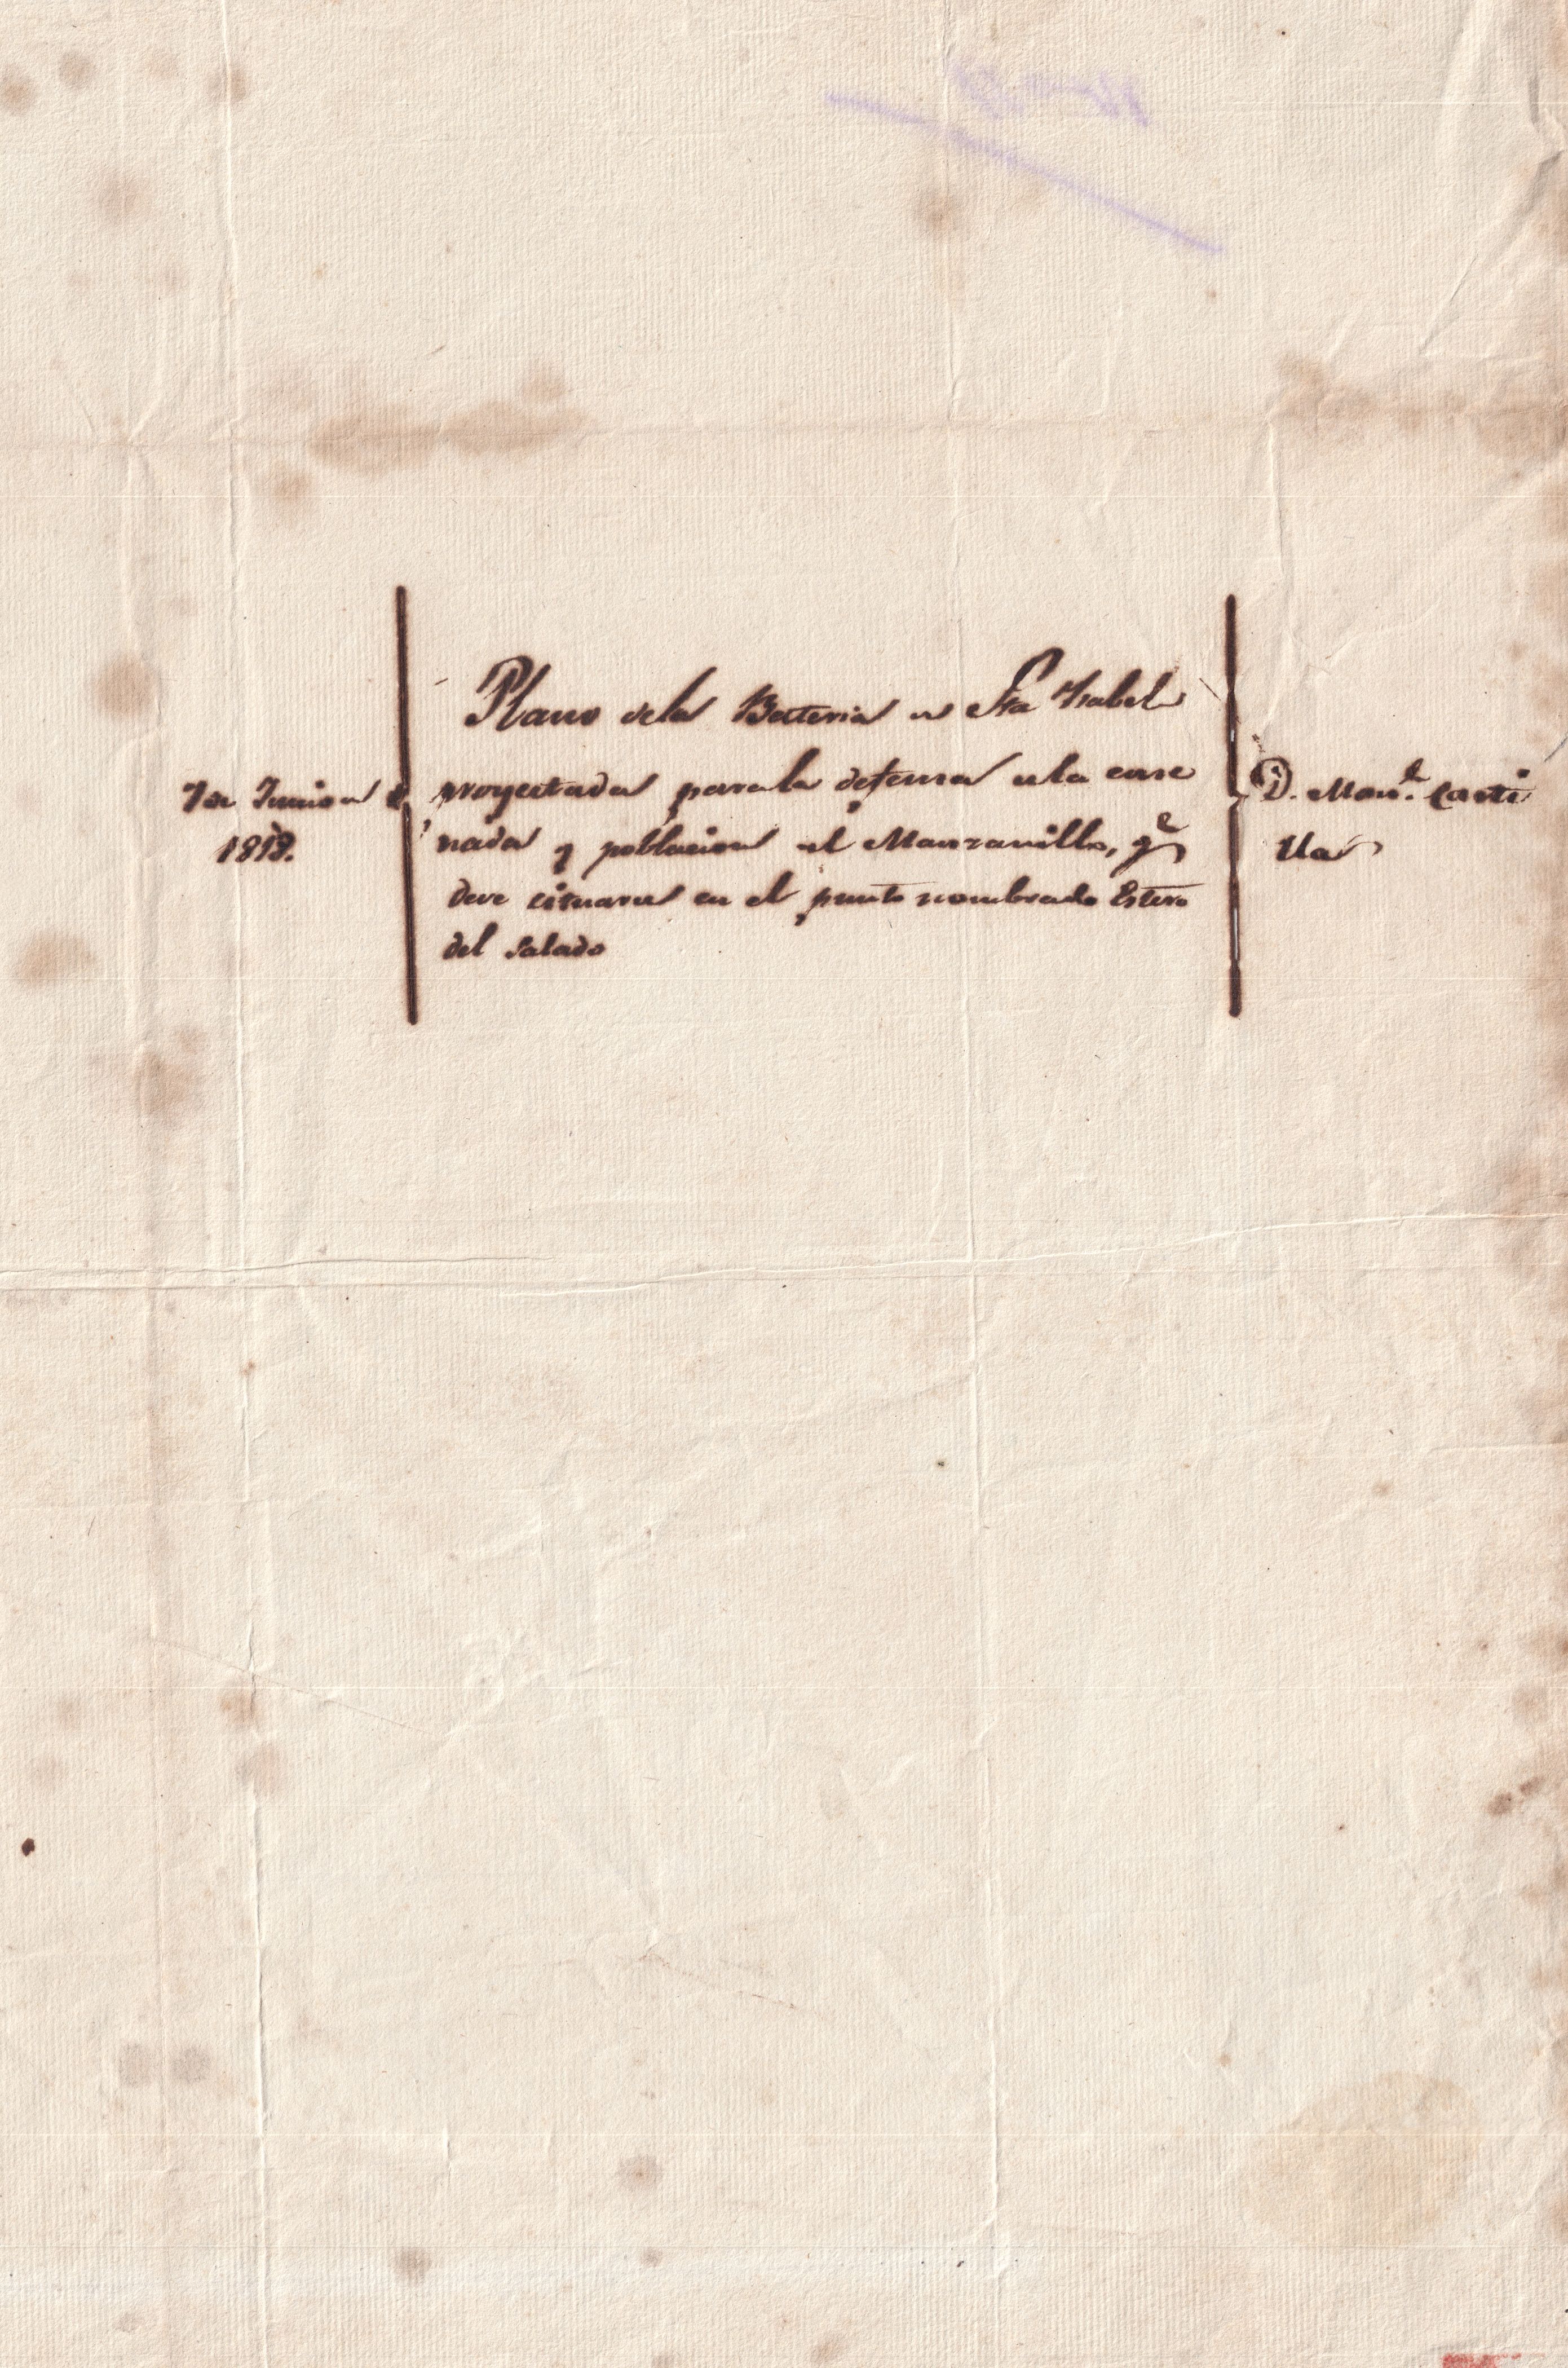 Plano dela Bateria de Sta Ysabel
proyectada para la defensa de la ense
nada y poblacion del Manzanillo, qe
deve cituarse en el punto nombrado Estero
del Salado
7 de Junio de
D. Manl. Casti
lla